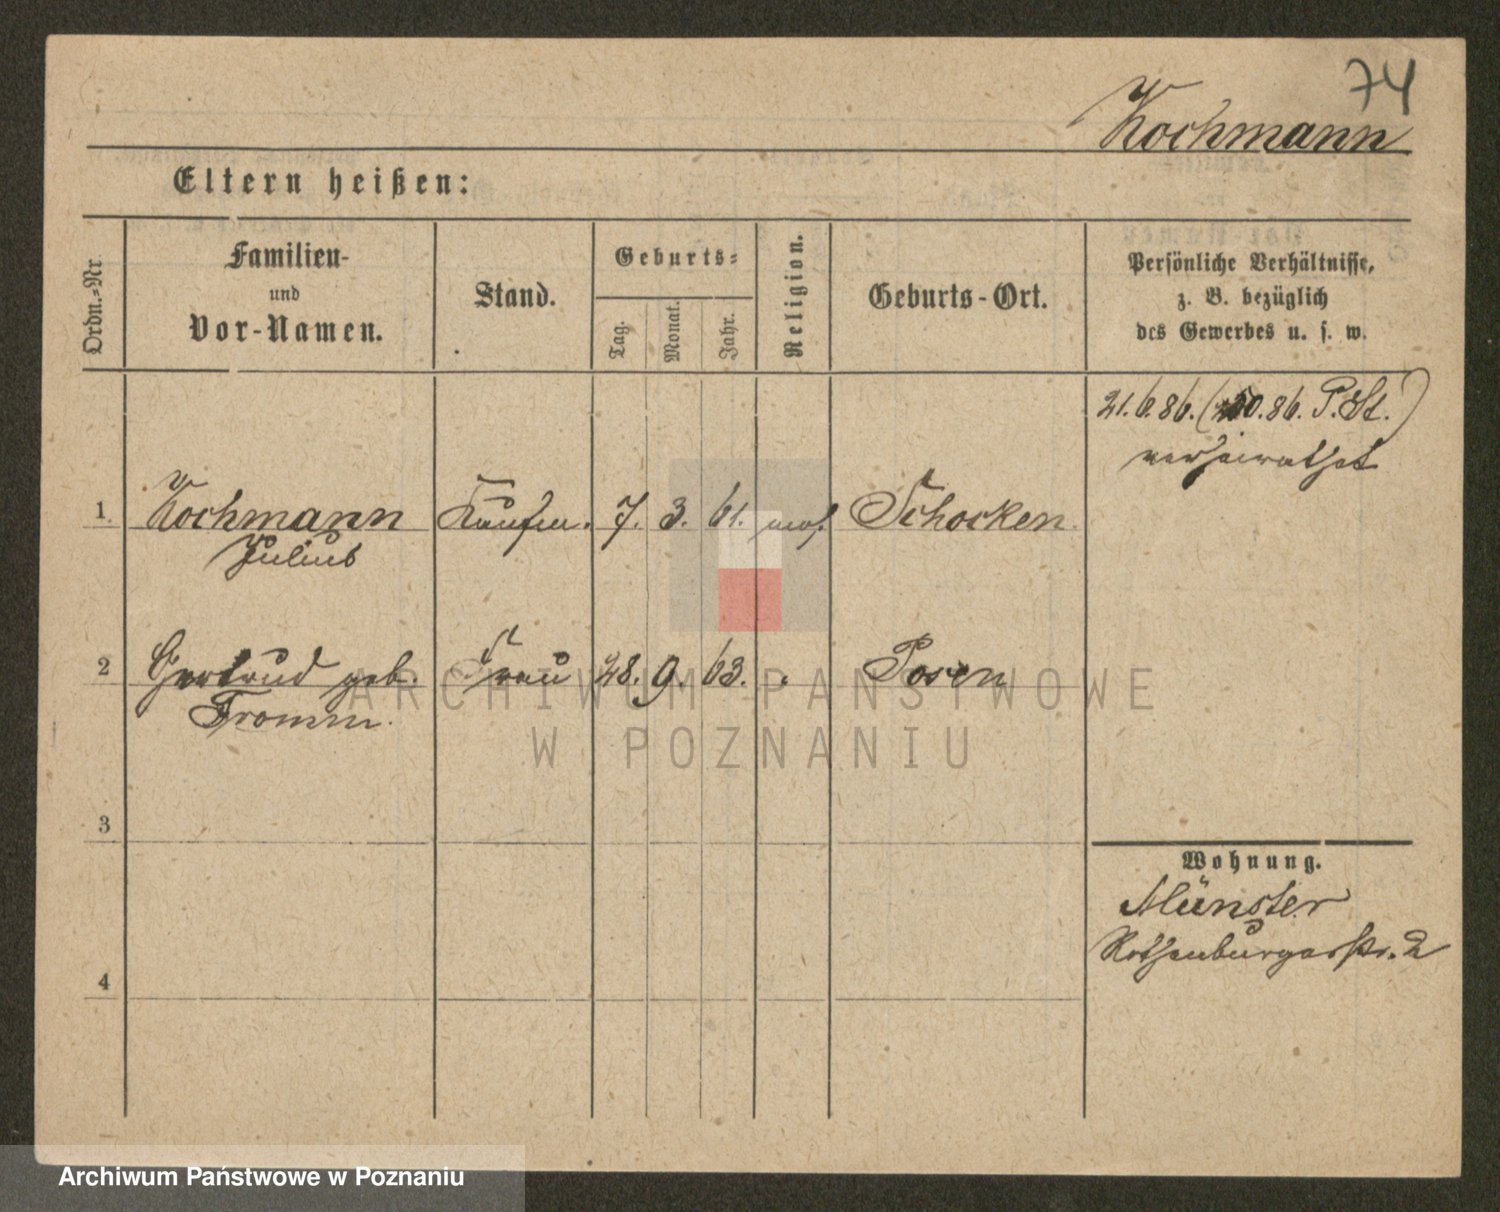 74
Kochmann
Eltern heißen:
Ordn.-Nr.
Familien-
und
Vor-Namen.
Stand.
Geburts-
Tag.
Monat.
Jahr.
Religion.
Geburts-Ort.
Persönliche Verhältnisse,
z. B. bezüglich
des Gewerbes u. s. w.
21.6.86. (50.86. P.St.)
verheirathet
1. Kochmann Kaufm. 7. 3. 61. mos. Schocken
Julius
2 Gertrud geb. Frau 28. 9. 63. Posen
Fromm.
ARCHIWUM PAŃSTWOWE
W POZNANIU
3
Wohnung.
Münster
Rothenburgerstr. 2
4
Archiwum Państwowe w Poznaniu